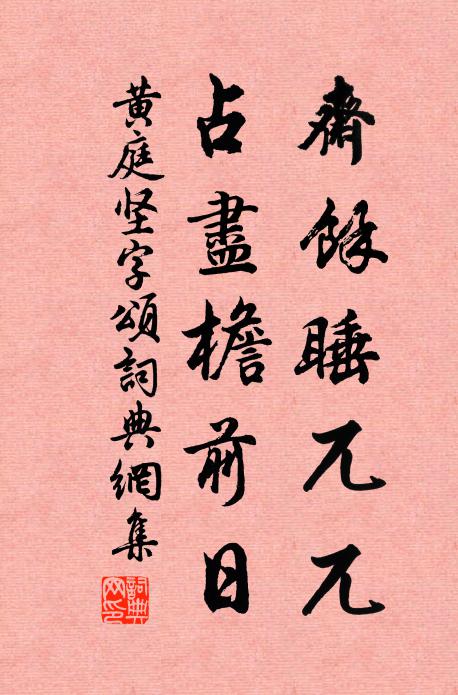 齋餘睡兀兀
占盡檐前日
黄庭坚字頌詞典網集
詞典网印